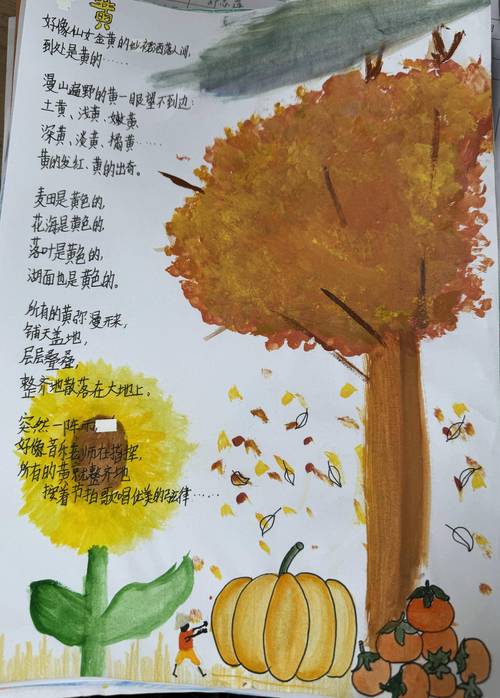 黄
好像仙女金黄的纱裙洒落人间,
到处是黄的……
漫山遍野的黄一眼望不到边:
土黄、浅黄、嫩黄、
深黄、淡黄、橘黄……
黄的发红、黄的出奇。
麦田是黄色的,
花海是黄色的,
落叶是黄色的,
湖面也是黄色的。
所有的黄弥漫开来,
铺天盖地,
层层叠叠,
整齐地散落在大地上。
突然一阵雨
好像音乐老师在指挥,
所有的黄就整齐地
按着节拍歌唱优美的弦律……